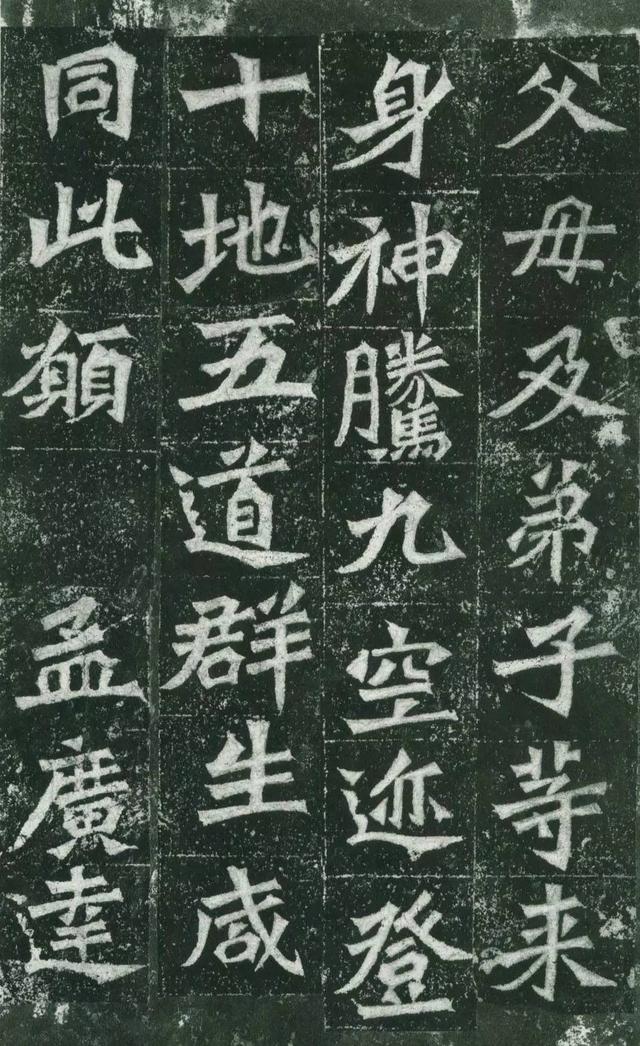 父母及弟子等来
身神騰九空迹登
十地五道群生咸
同此願　孟廣達